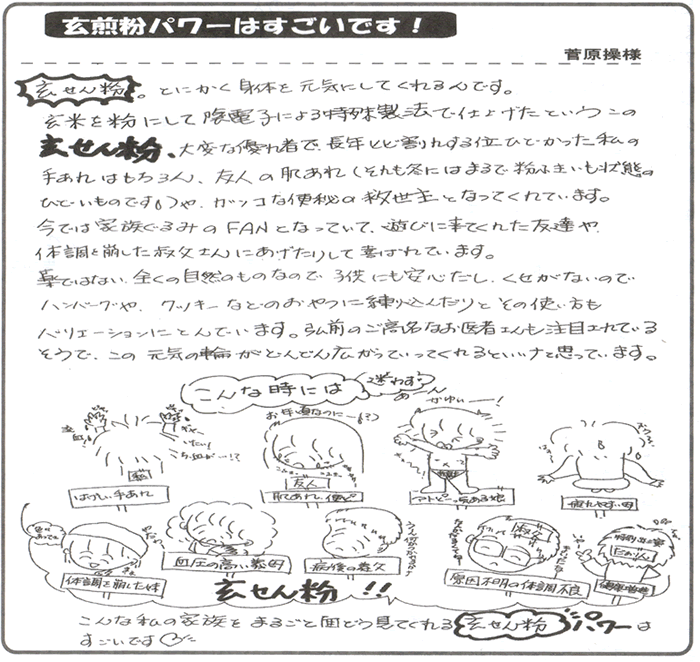 玄煎粉パワーはすごいです！
菅原操様
玄せん粉。とにかく身体を元気にしてくれるんです。
玄米を粉にして陰電子による特殊製法で仕上げたというこの
玄せん粉、大変な優れ者で、長年ヒビ割れする位ひどかった私の
手あれはもちろん、友人の肌あれ(それも冬にはまるで粉ふきいも状態の
ひどいものです!)や、ガンコな便秘の救世主となってくれています。
今では家族ぐるみのFANとなっていて、遊びに来てくれた友達や
体調を崩した叔父さんにあげたりして喜ばれています。
薬ではない、全くの自然のものなので子供にも安心だし、くせがないので
ハンバーグや、クッキーなどのおやつに練り込んだりとその使い方も
バリエーションにとんでいます。弘前のご高名なお医者さんも注目されている
そうで、この元気の輪がどんどん広がっていってくれるといいナと思っています。
こんな時には迷わず
あ〜ん
かゆいー!
お年頃なのにー
いたい!
私
友人
はげしい手あれ
肌あれ、便ぴ
アトピーっ気のある娘
疲れやすい
体調を崩した妹
血圧の高い
病後の
叔父
原因不明の体調不良
玄せん粉!!
こんな私の家族をまるごと面どう見てくれる玄せん粉パワーは
すごいです